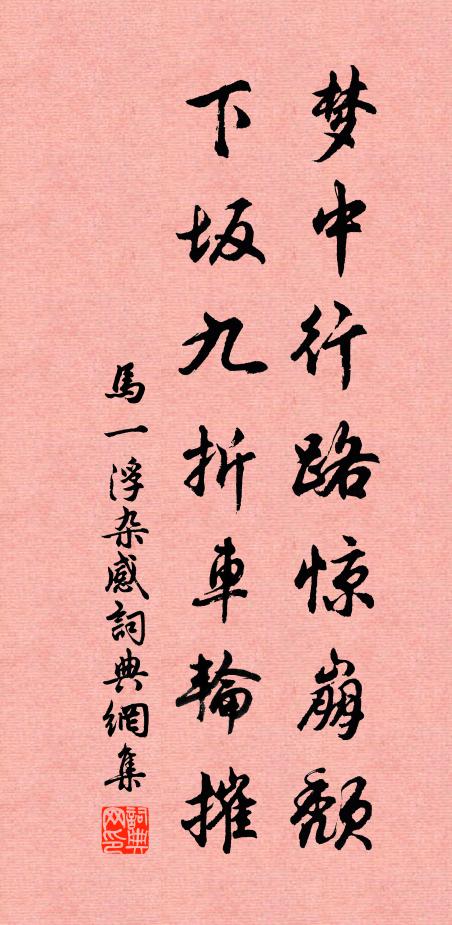 梦中行路惊崩颓
下坂九折車輪摧
馬一浮杂感詞典網集
詞典网印